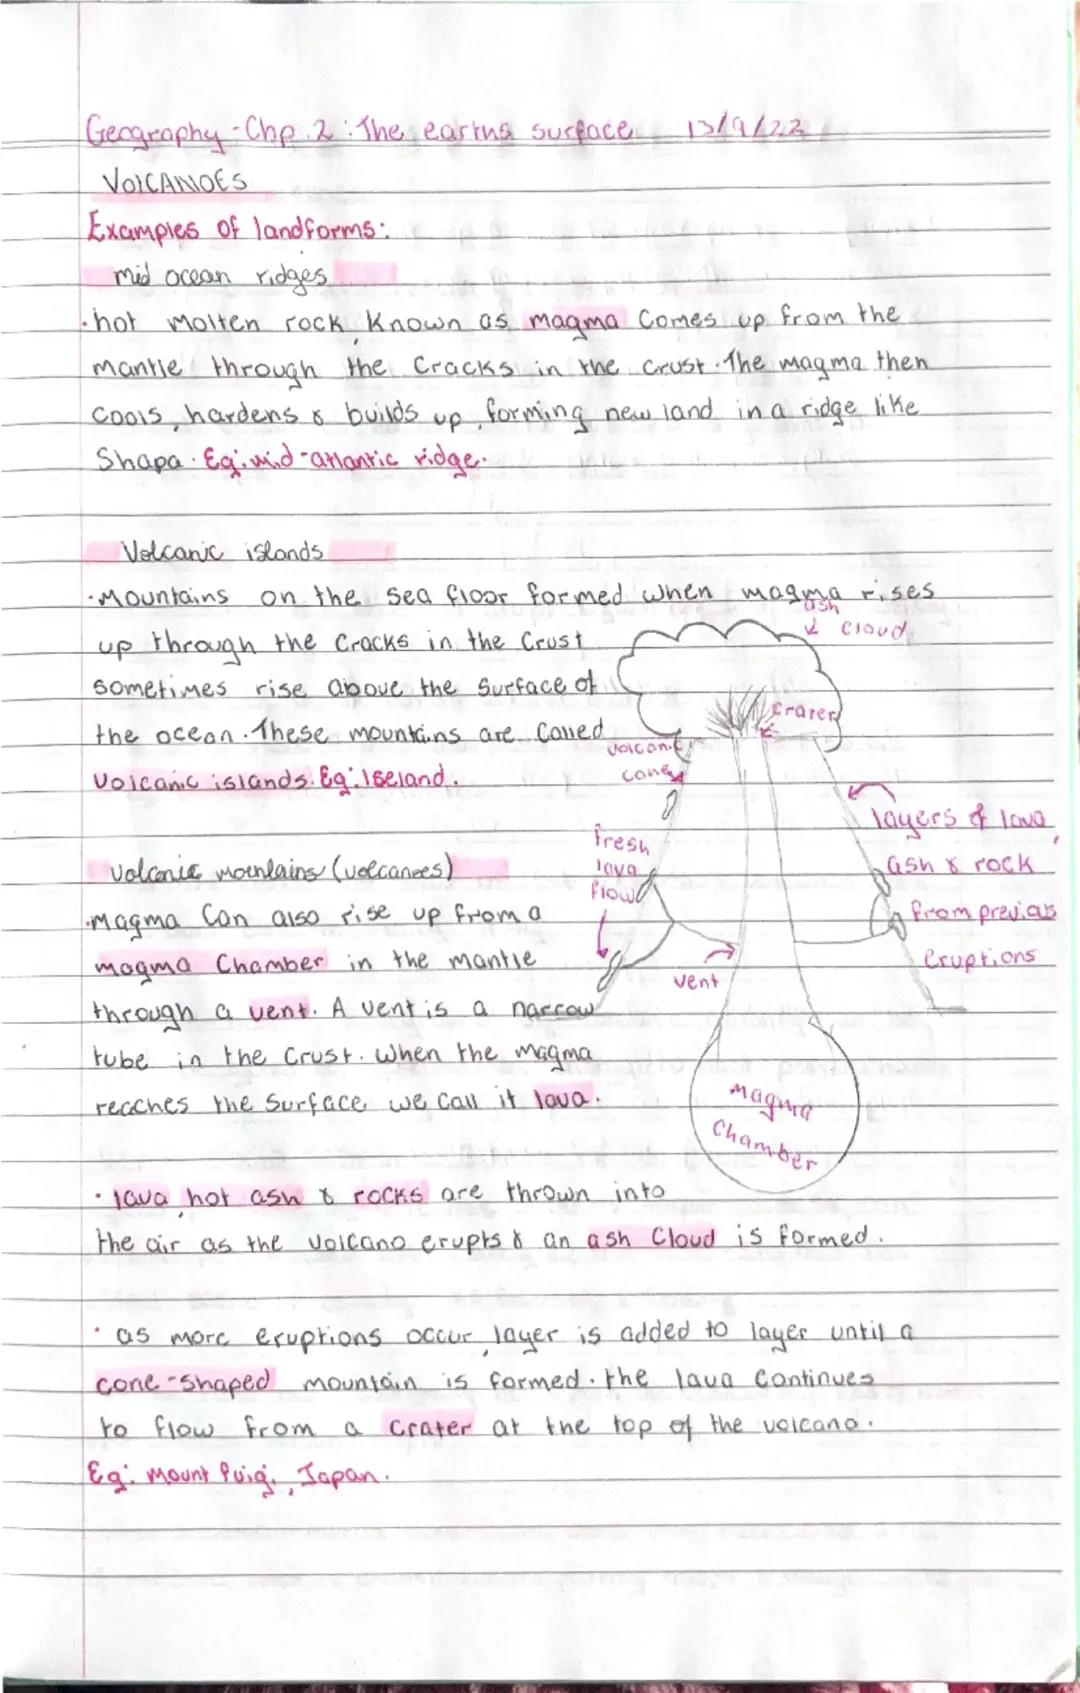 Geography - Chp. 2 : The earths surface 13/9/22
VOlCANOES
Examples of landforms:
mid ocean ridges
• hot molten rock known as magma comes up from the
mantle through the cracks in the crust. The magma then
cools, hardens & builds up, forming new land in a ridge like
Shapa. Eg: mid-atlantic ridge.
Volcanic islands
• Mountains on the sea floor formed when magma rises
up through the cracks in the crust
sometimes rise above the surface of
the ocean. These mountains are called
volcanic islands. Eg: Iseland.
ash
cloud
crater
volcanic
cone
layers of lava,
ash & rock
from previous
eruptions
fresh
lava
flow
vent
magma
chamber
volcanic mountains (volcanoes)
• Magma can also rise up from a
magma chamber in the mantle
through a vent. A vent is a narrow
tube in the crust. When the magma
reaches the surface we call it lava.
• lava, hot ash & rocks are thrown into
the air as the volcano erupts & an ash cloud is formed.
• as more eruptions occur, layer is added to layer until a
cone-shaped mountain is formed. the lava continues
to flow from a crater at the top of the volcano.
Eg: Mount fuigi, Japan.